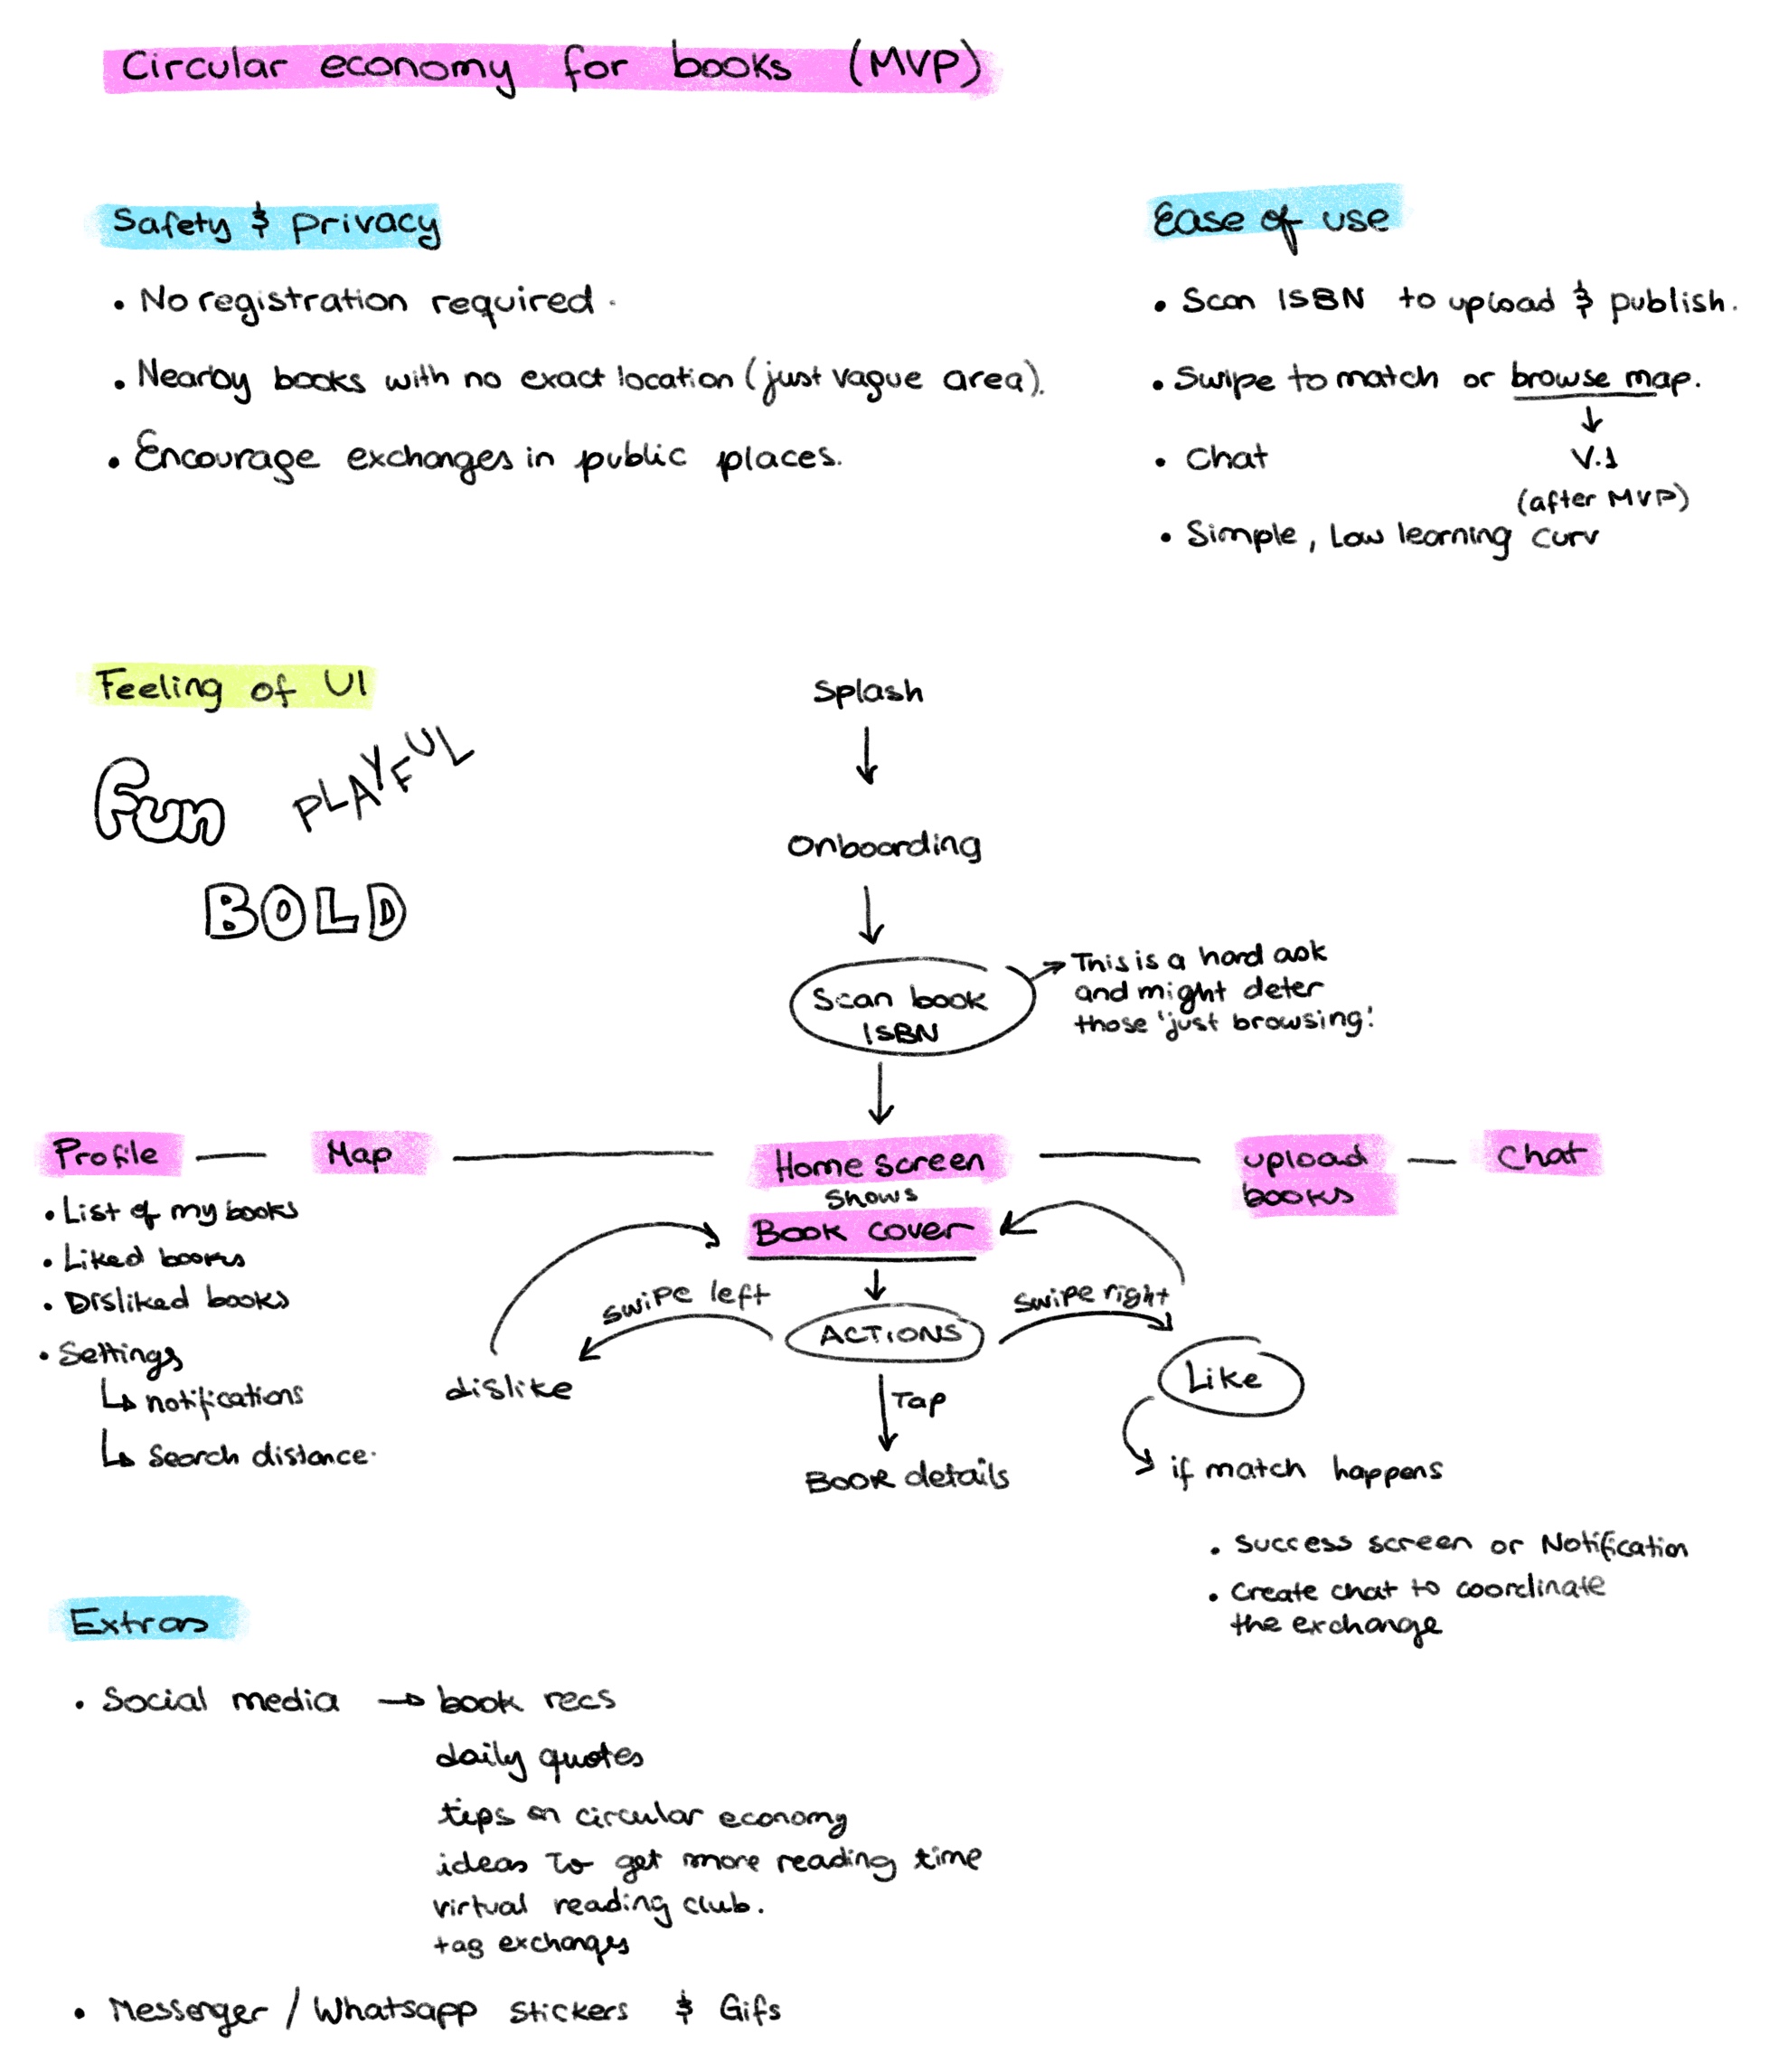 Circular economy for books (MVP)
Safety & privacy
• No registration required.
• Nearby books with no exact location (just vague area).
• Encourage exchanges in public places.
Ease of use
• Scan ISBN to upload & publish.
• Swipe to match or browse map.
V.1
(after MVP)
• Chat
• Simple, Low learning curv
Feeling of UI
Fun
PLAYFUL
BOLD
Splash
Onboarding
Scan book
ISBN
This is a hard ask
and might deter
those 'just browsing'.
Profile
• List of my books
• Liked books
• Disliked books
• Settings
↳ notifications
↳ Search distance.
Map
Home screen
shows
Book cover
upload
books
Chat
ACTIONS
swipe left
dislike
Tap
Book details
swipe right
Like
if match happens
• Success screen or Notification
• Create chat to coordinate
the exchange
Extras
• Social media → book recs
daily quotes
tips on circular economy
ideas to get more reading time
virtual reading club.
tag exchanges
• Messenger / Whatsapp stickers & Gifs